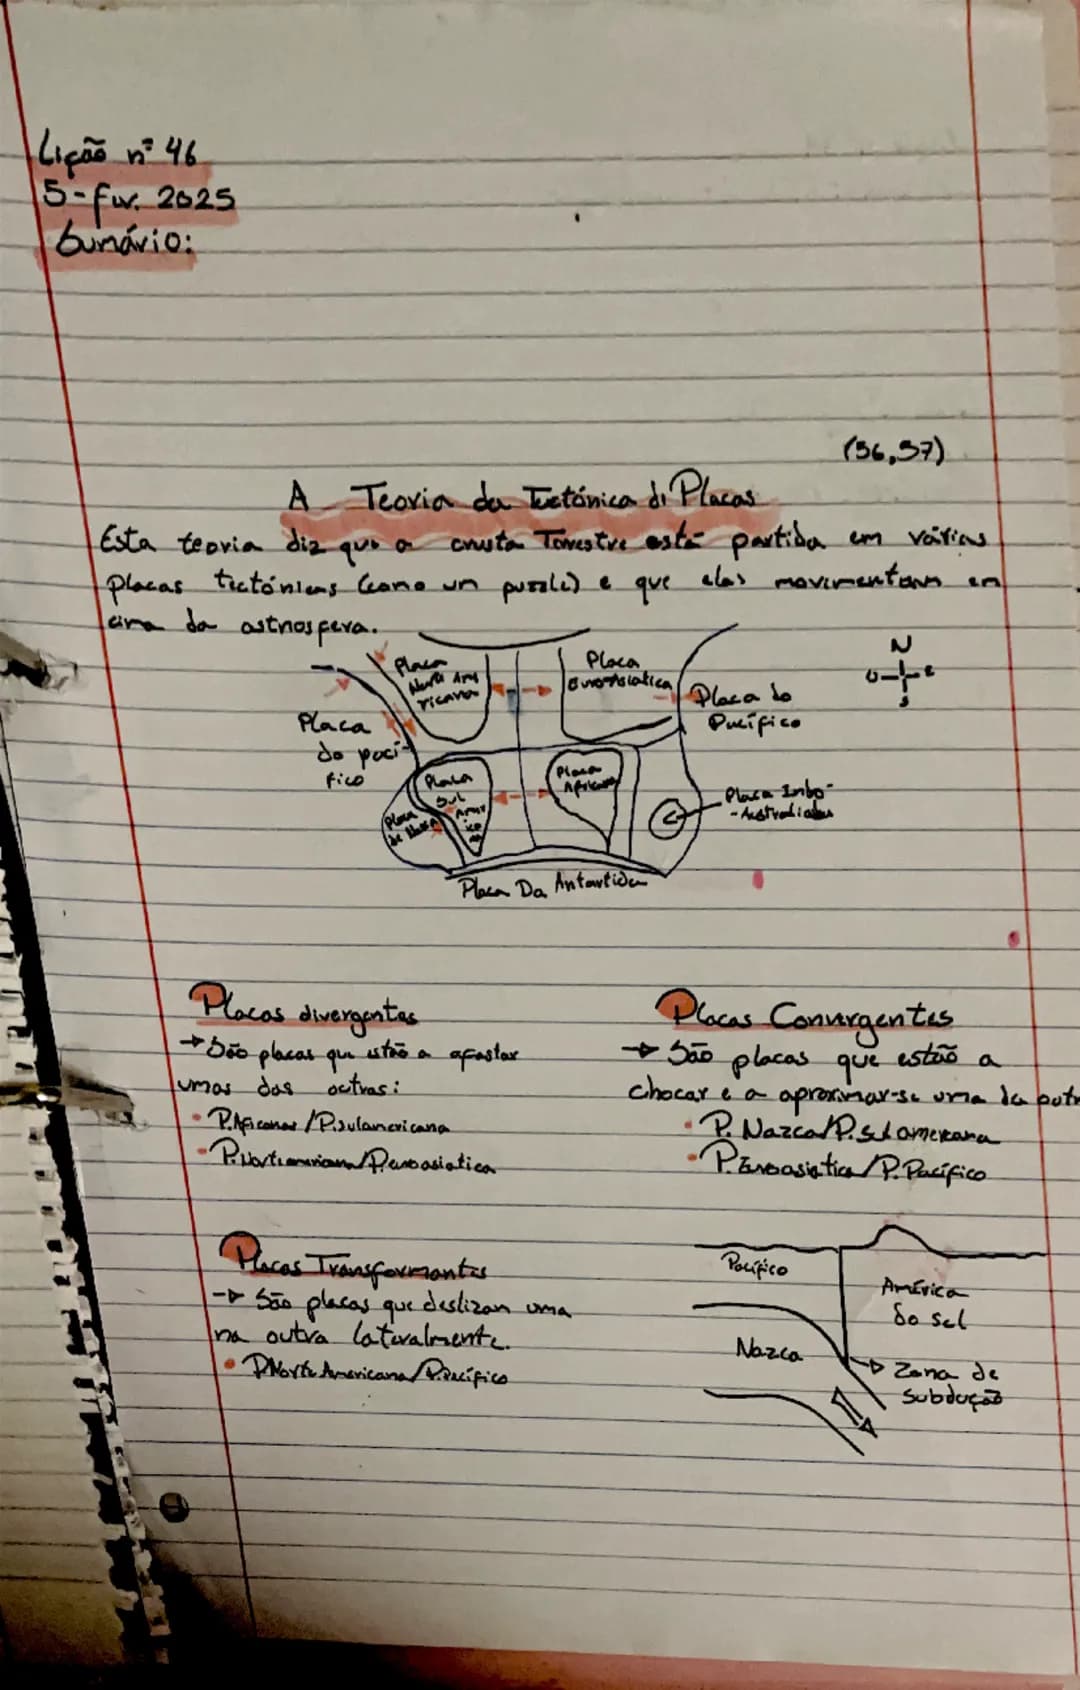 Lição nº 46
5-fev. 2025
Sumário:
(56,57)
A Teoria da Tectónica de Placas
Esta teoria diz que a crusta Terrestre está partida em várias
placas tectónicas (como um puzzle) e que elas movimentam em
cima da astnosfera.
Placa
Norte Ame
ricana
Placa
Euroasiatica
N
O
E
S
Placa do
Pacífico
Placa
do pací-
fico
Placa
Sul
Amer
ica
na
Placa
Africana
Placa
de Nazca
Placa Indo-
-Australiana
Placa Da Antartida
Placas divergentes
→ São placas que estão a afastar
umas das outras:
• P.Africana/P.sulamericana
• P.Norteamericana/P.euroasiatica
Placas Convergentes
→ São placas que estão a
chocar e a aproximar-se uma da outr
• P. Nazca/P.sulamericana
• P.Euroasiatica/P.Pacífico
Placas Transformantes
→ São placas que deslizam uma
na outra lateralmente.
• P.Norte Americana/P.Pacífico
Pacífico
América
do sul
Nazca
→ Zona de
subdução